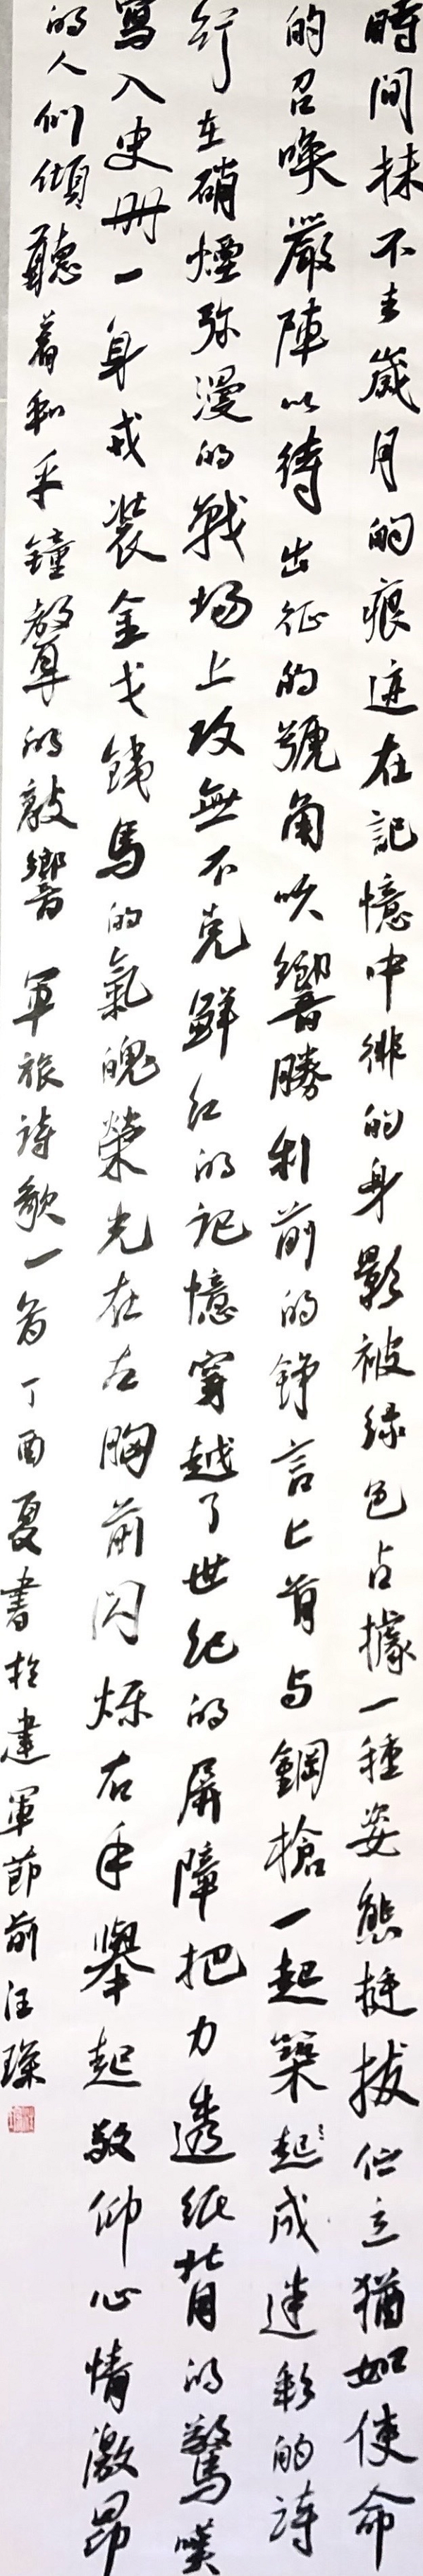 時間抹不去歲月的痕迹在記憶中徘的身影被綠色占據一種姿態挺拔伫立猶如使命
的召喚嚴陣以待出征的號角吹響勝利前的錚言匕首与鋼槍一起築起成迷彩的詩
行在硝煙弥漫的戰場上攻無不克鮮红的記憶穿越了世纪的屏障把力透纸背的驚嘆
寫入史册一身戎裝金戈鐵馬的氣魄榮光在左胸前闪烁右手舉起敬仰心情激昂
的人们傾聽着和平鐘聲的敲響 軍旅詩歌一首丁酉夏書於建軍節前汪琛